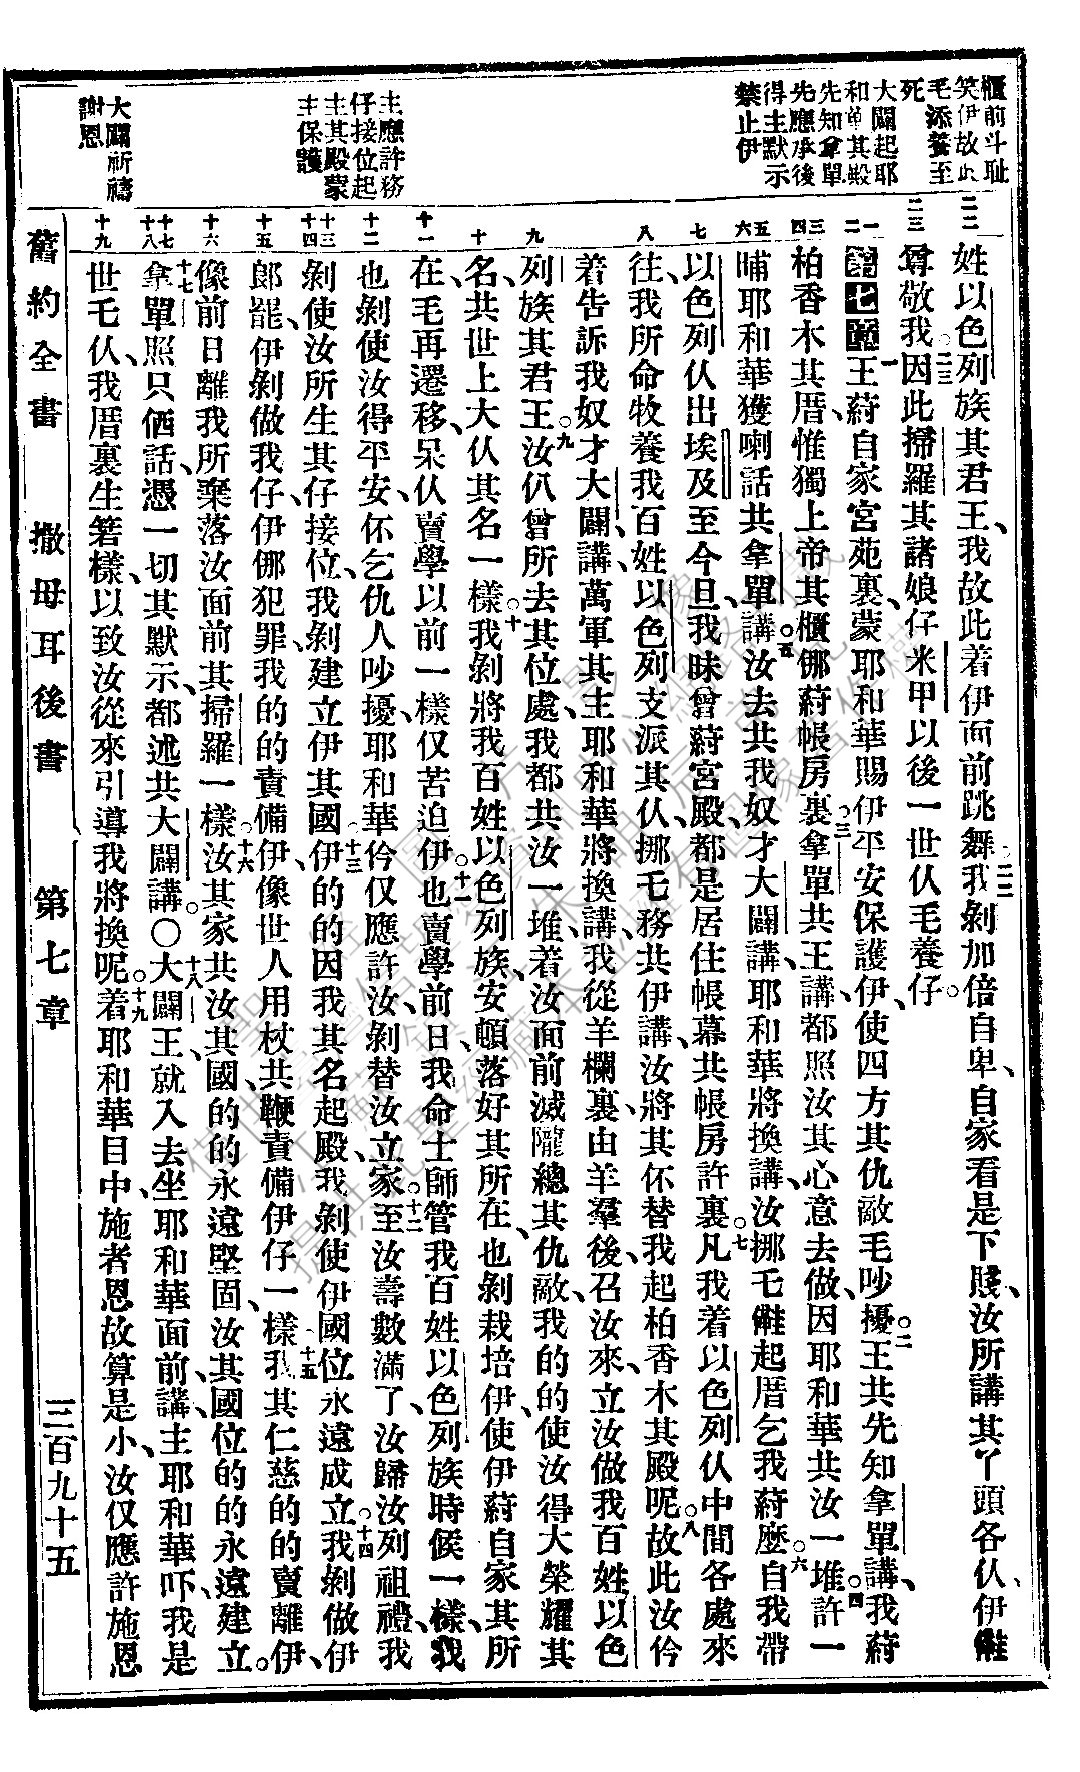 櫃前斗耻
笑伊故此
毛添養至
死
大闢起耶
和華其殿
先知拿單
先應承後
得主默示
禁止伊
主應許務
仔接位起
主其殿蒙
主保護
大闢祈禱
謝恩
姓以色列族其君王、我故此着伊面前跳舞。二二我剝加倍自卑、自家看是下賤、汝所講其丫頭各仈、伊
尊敬我。二三因此掃羅其諸娘仔米甲以後一世仈毛養仔。
第七章 一王蒞自家宮苑裏、蒙耶和華賜伊平安保護伊、使四方其仇敵毛吵擾。二王共先知拿單講、我蒞
柏香木其厝、惟獨上帝其櫃㑚蒞帳房裏。三拿單共王講、都照汝其心意去做、因耶和華共汝一堆許一
晡、耶和華獲喇話共拿單講、五汝去共我奴才大闢講、耶和華將換講、汝挪毛起厝乞我蒞麽。六自我帶
以色列仈出埃及至今旦、我昧曾蒞宮殿、都是居住帳幕共帳房許裏。七凡我着以色列仈中間各處來
往、我所命牧養我百姓以色列支派其仈、挪毛務共伊講、汝將其伓替我起柏香木其殿呢。八故此汝伶
着告訴我奴才大闢講、萬軍其主耶和華將換講、我從羊欄裏、由羊羣後、召汝來、立汝做我百姓以色
列族其君王。九汝仈曾所去其位處、我都共汝一堆、着汝面前滅隴總其仇敵、我的的使汝得大榮耀其
名、共世上大仈其名一樣。十我剝將我百姓以色列族、安頓落好其所在、也剝栽培伊、使伊蒞自家其所
在、毛再遷移、呆仈賣學以前一樣仅苦迫伊。十一也賣學前日我命士師管我百姓以色列族時候一樣、我
也剝使汝得平安、伓乞仇人吵擾、耶和華伶仅應許汝、剝替汝立家。十二至汝壽數滿了、汝歸汝列祖禮、我
剝使汝所生其仔接位、我剝建立伊其國。十三伊的的因我其名起殿、我剝使伊國位永遠成立。十四我剝做伊
郞罷、伊剝做我仔、伊㑚犯罪、我的的責備伊、像世人用杖共鞭責備伊仔一樣。十五我其仁慈的的賣離伊、
像前日離我所棄落汝面前其掃羅一樣。十六汝其家共汝其國的的永遠堅固、汝其國位的的永遠建立。
十七拿單照只㑚話、憑一切其默示、都述共大闢講。〇十八大闢王就入去坐耶和華面前講、主耶和華吓、我是
世毛仈、我厝裏生箬樣、以致汝從來引導我將換呢。十九着耶和華目中、施者恩故算是小、汝仅應許施恩
舊約全書 撒母耳後書 第七章 三百九十五